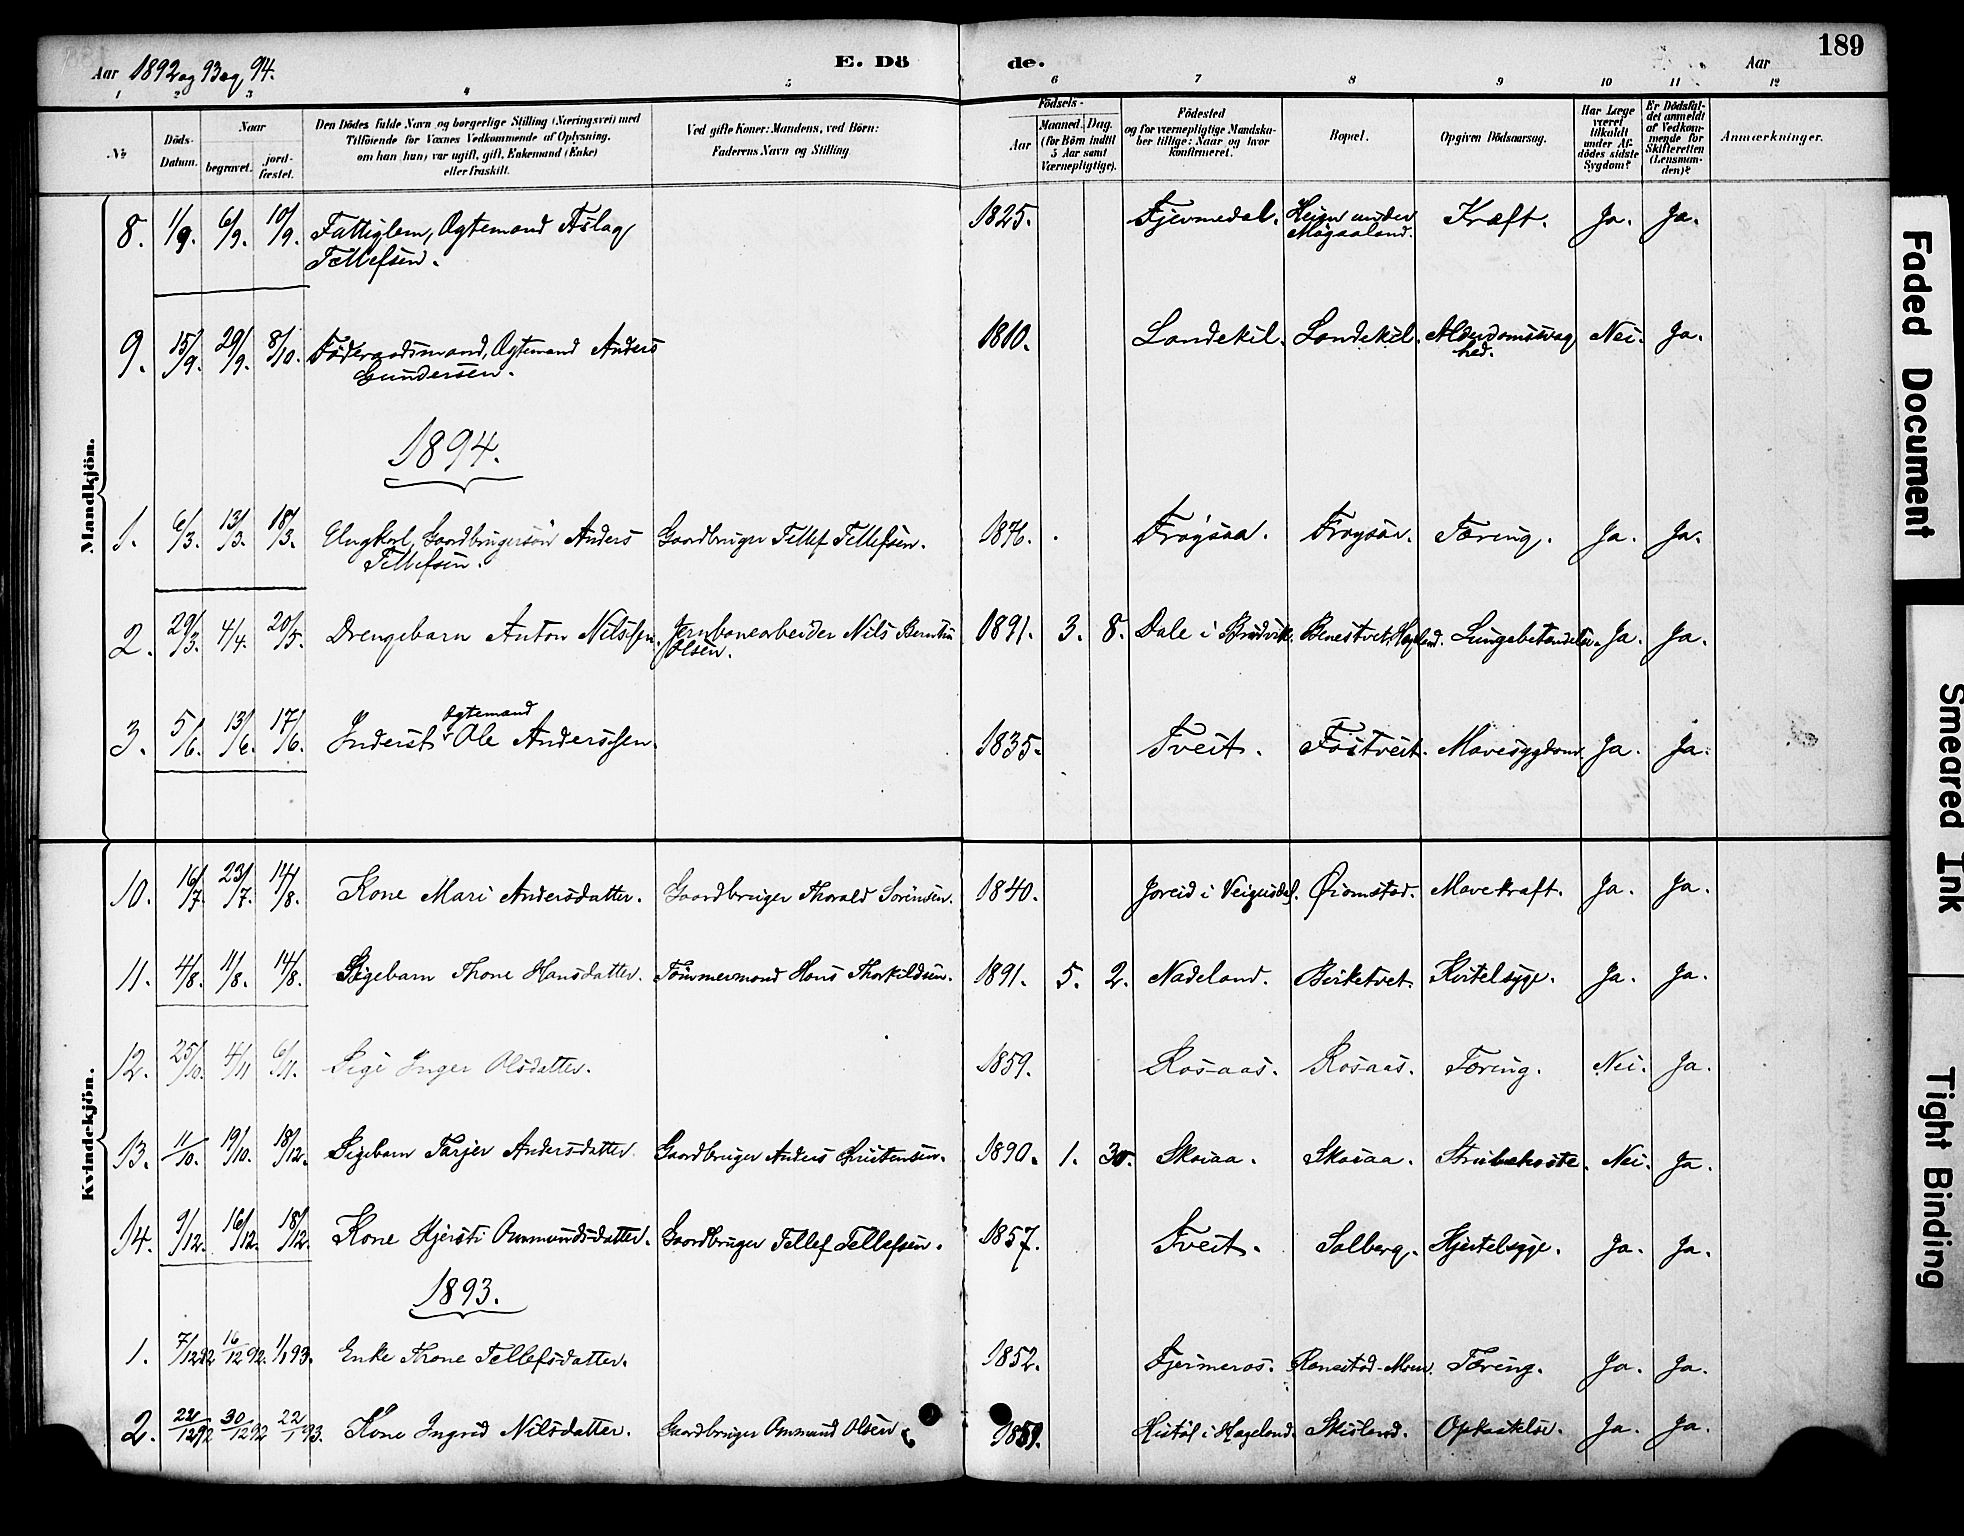 Aar 1892 og 93 og 94.
E. Dö de.
Aar
189
1 2 3 4 5 6 7 8 9 10 11 12
No
Döds-Datum.
Naar
begravet.
jord-fæstet.
Den Dödes fulde Navn og borgerlige Stilling (Næringsvei) med
Tilföiende for Voxnes Vedkommende af Oplysning,
om han (hun) var ugift, gift, Enkemand (Enke)
eller fraskilt.
Ved gifte Koner: Mandens, ved Börn:
Faderens Navn og Stilling
Födsels-
Aar
Maaned. Dag.
(for Börn indtil
5 Aar samt
Værnepligtige).
Födested
og for værnepligtige Mandska-
ber tillige: Naar og hvor
konfirmeret.
Bopæl.
Opgiven Dödsaarsag.
Har Læge
været
tilkaldt
under Af-
dödes sidste
Sygdom?
Er Dödsfal-
det anmeldt
af Vedkom-
mende for
Skifteretten
(Lensman-
den)?
Anmærkninger.
Mandkjön.
8. 1/9. 6/9. 10/9. Fattiglem, Ægtemand Aslag 1825. Heien under Kræft. Ja. Ja.
Tellefsen.
9. 15/9. 29/9. 8/10. Føderaadsmand, Ægtemand Anders 1810. Landekil. Landekil. Alderdomssvag Nei. Ja.
Gundersen. hed.
1894.
1. 6/3. 13/3. 18/3. Ungkarl, Gaardbrugersøn Anders Gaardbruger Tellef Tellefsen. 1876. Frøysaa. Frøysaa. Tæring. Ja. Ja.
Tellefsen.
2. 29/3. 4/4. 20/5. Drengebarn Anton Nilssen. Jernbanearbeider Nils Berntin 1891. 3. 8. Dale i Lungebetændelse. Ja. Ja.
Olsen.
Ægtemand
3. 5/6. 13/6. 17/6. Inderst Ole Anderssen. 1835. Tveit. Fostveit. Mavesygdom. Ja. Ja.
Kvindekjön.
10. 16/7. 23/7. 14/8. Kone Mari Andersdatter. Gaardbruger Thorald Sørensen. 1840. Joreid i Veigusdal. Øiomstad. Mavekræft. Ja. Ja.
11. 4/8. 11/8. 14/8. Pigebarn Thone Hansdatter. Tømmermand Hans Thorkildsen. 1891. 5. 2. Nadeland. Birketvet. Kirtelsyge. Ja. Ja.
12. 25/10. 4/11 6/11. Pige Inger Olsdatter. 1859. Rosaas. Rosaas. Tæring. Nei. Ja.
13. 11/10. 19/10. 18/12. Pigebarn Tarjer Andersdatter. Gaardbruger Anders Christensen. 1890. 1. 30. Skaiaa. Skaiaa. Strubehoste. Nei. Ja.
14. 9/12. 16/12. 18/12. Kone Kjersti Ommundsdatter. Gaardbruger Tellef Tellefsen. 1857. Tveit. Solberg. Hjertelsyge. Ja. Ja.
1893.
1. 7/12 92 16/12 92. 1/1 93. Enke Thone Tellefsdatter. 1852. Fjermeros. Ranestad-Moen. Tæring. Ja. Ja.
2. 22/12 92 30/12 92 22/1 93. Kone Ingrid Nilsdatter. Gaardbruger Ommund Olsen 1859. Histøl i Hægeland. Skisland. Opkastelse. Ja. Ja.
Faded Document
Smeared Ink
Tight Binding